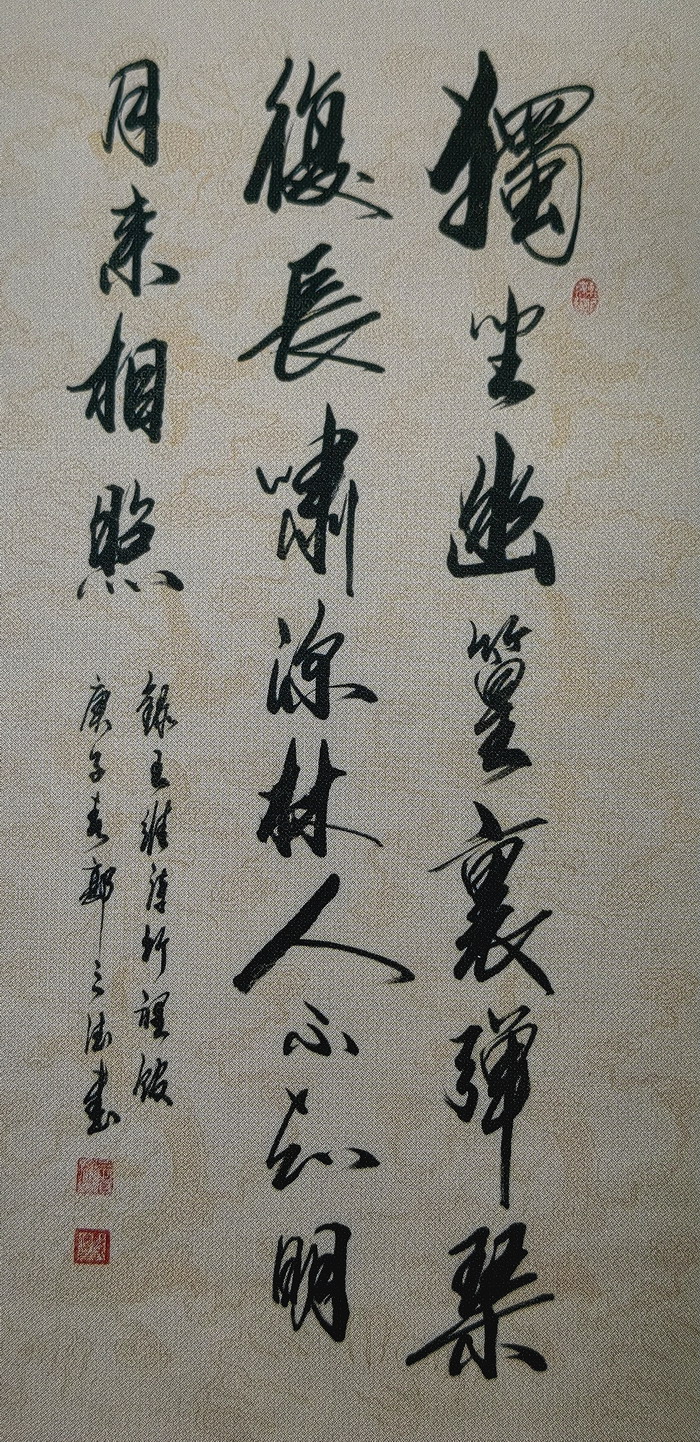 獨坐幽篁裏彈琴
復長嘯深林人不知明
月来相照
録王維詩竹裡館
庚子春鄭之法書